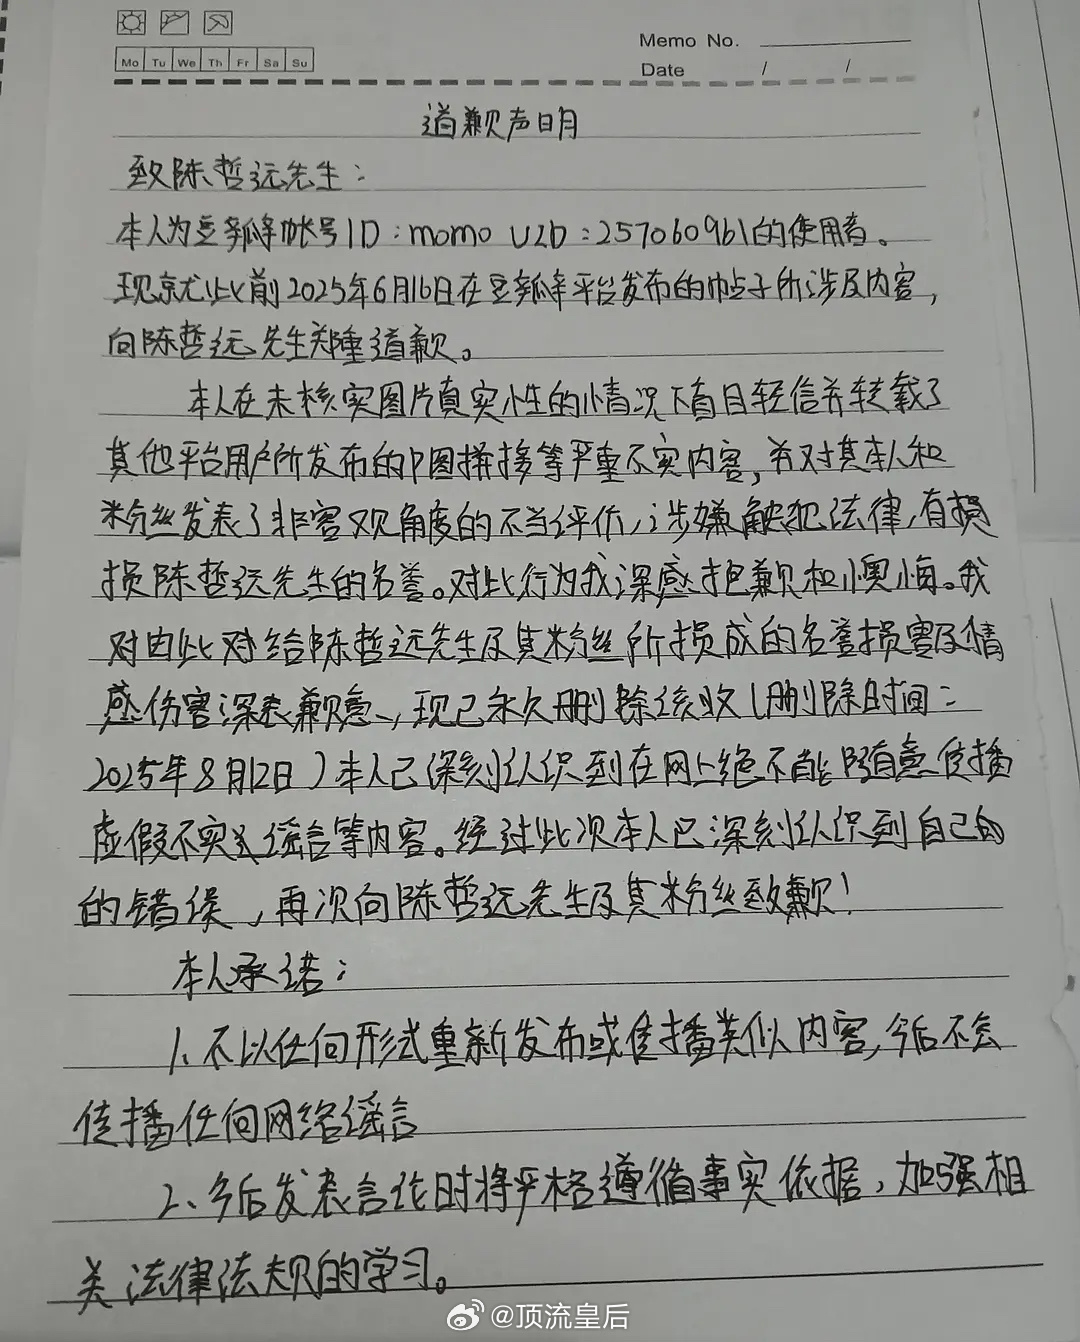 Mo Tu We Th Fr Sa Su
Memo No.
Date / /
道歉声明
致陈哲远先生：
本人为豆瓣帐号ID：momo UID：257060961的使用者。
现就此前2025年6月16日在豆瓣平台发布的帖子所涉及内容，
向陈哲远先生郑重道歉。
本人在未核实图片真实性的情况下盲目轻信并转载了
其他平台用户所发布的P图拼接等严重不实内容，并对其本人和
粉丝发表了非客观角度的不当评价，涉嫌触犯法律，有损
损陈哲远先生的名誉。对此行为我深感抱歉和懊悔。我
对由此对给陈哲远先生及其粉丝所损成的名誉损害及情
感伤害深表歉意，现已永久删除该收（删除时间：
2025年8月12日）本人已深刻认识到在网上绝不能随意传播
虚假不实谣言等内容。经过此次本人已深刻认识到自己的
的错误，再次向陈哲远先生及其粉丝致歉！
本人承诺：
1、不以任何形式重新发布或传播类似内容，今后不会
传播任何网络谣言
2、今后发表言论时将严格遵循事实依据，加强相
关法律法规的学习。
@顶流皇后